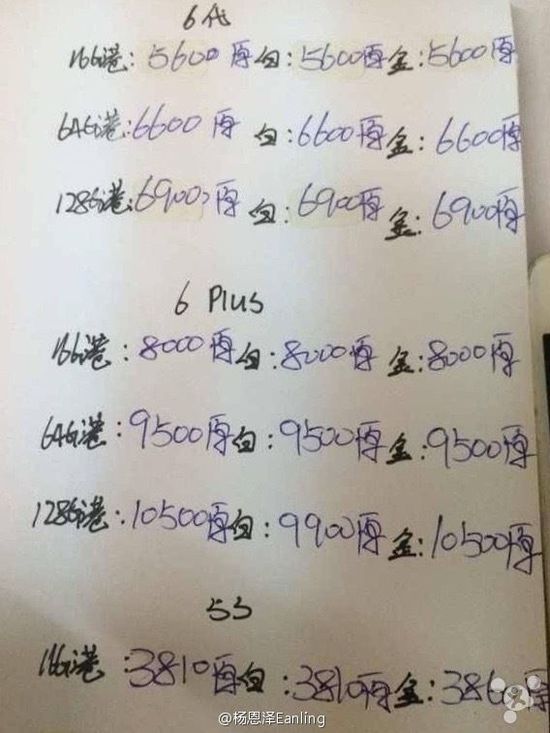 6代
16G港:5600原 白:5600原 金:5600原
64G港:6600原 白:6600原 金:6600原
128G港:6900原 白:6900原 金:6900原
6 Plus
16G港:8000原 白:8000原 金:8000原
64G港:9500原 白:9500原 金:9500原
128G港:10500原 白:9900原 金:10500原
5S
16G港:3810原 白:3810原 金:3860原
@杨恩泽Eanling